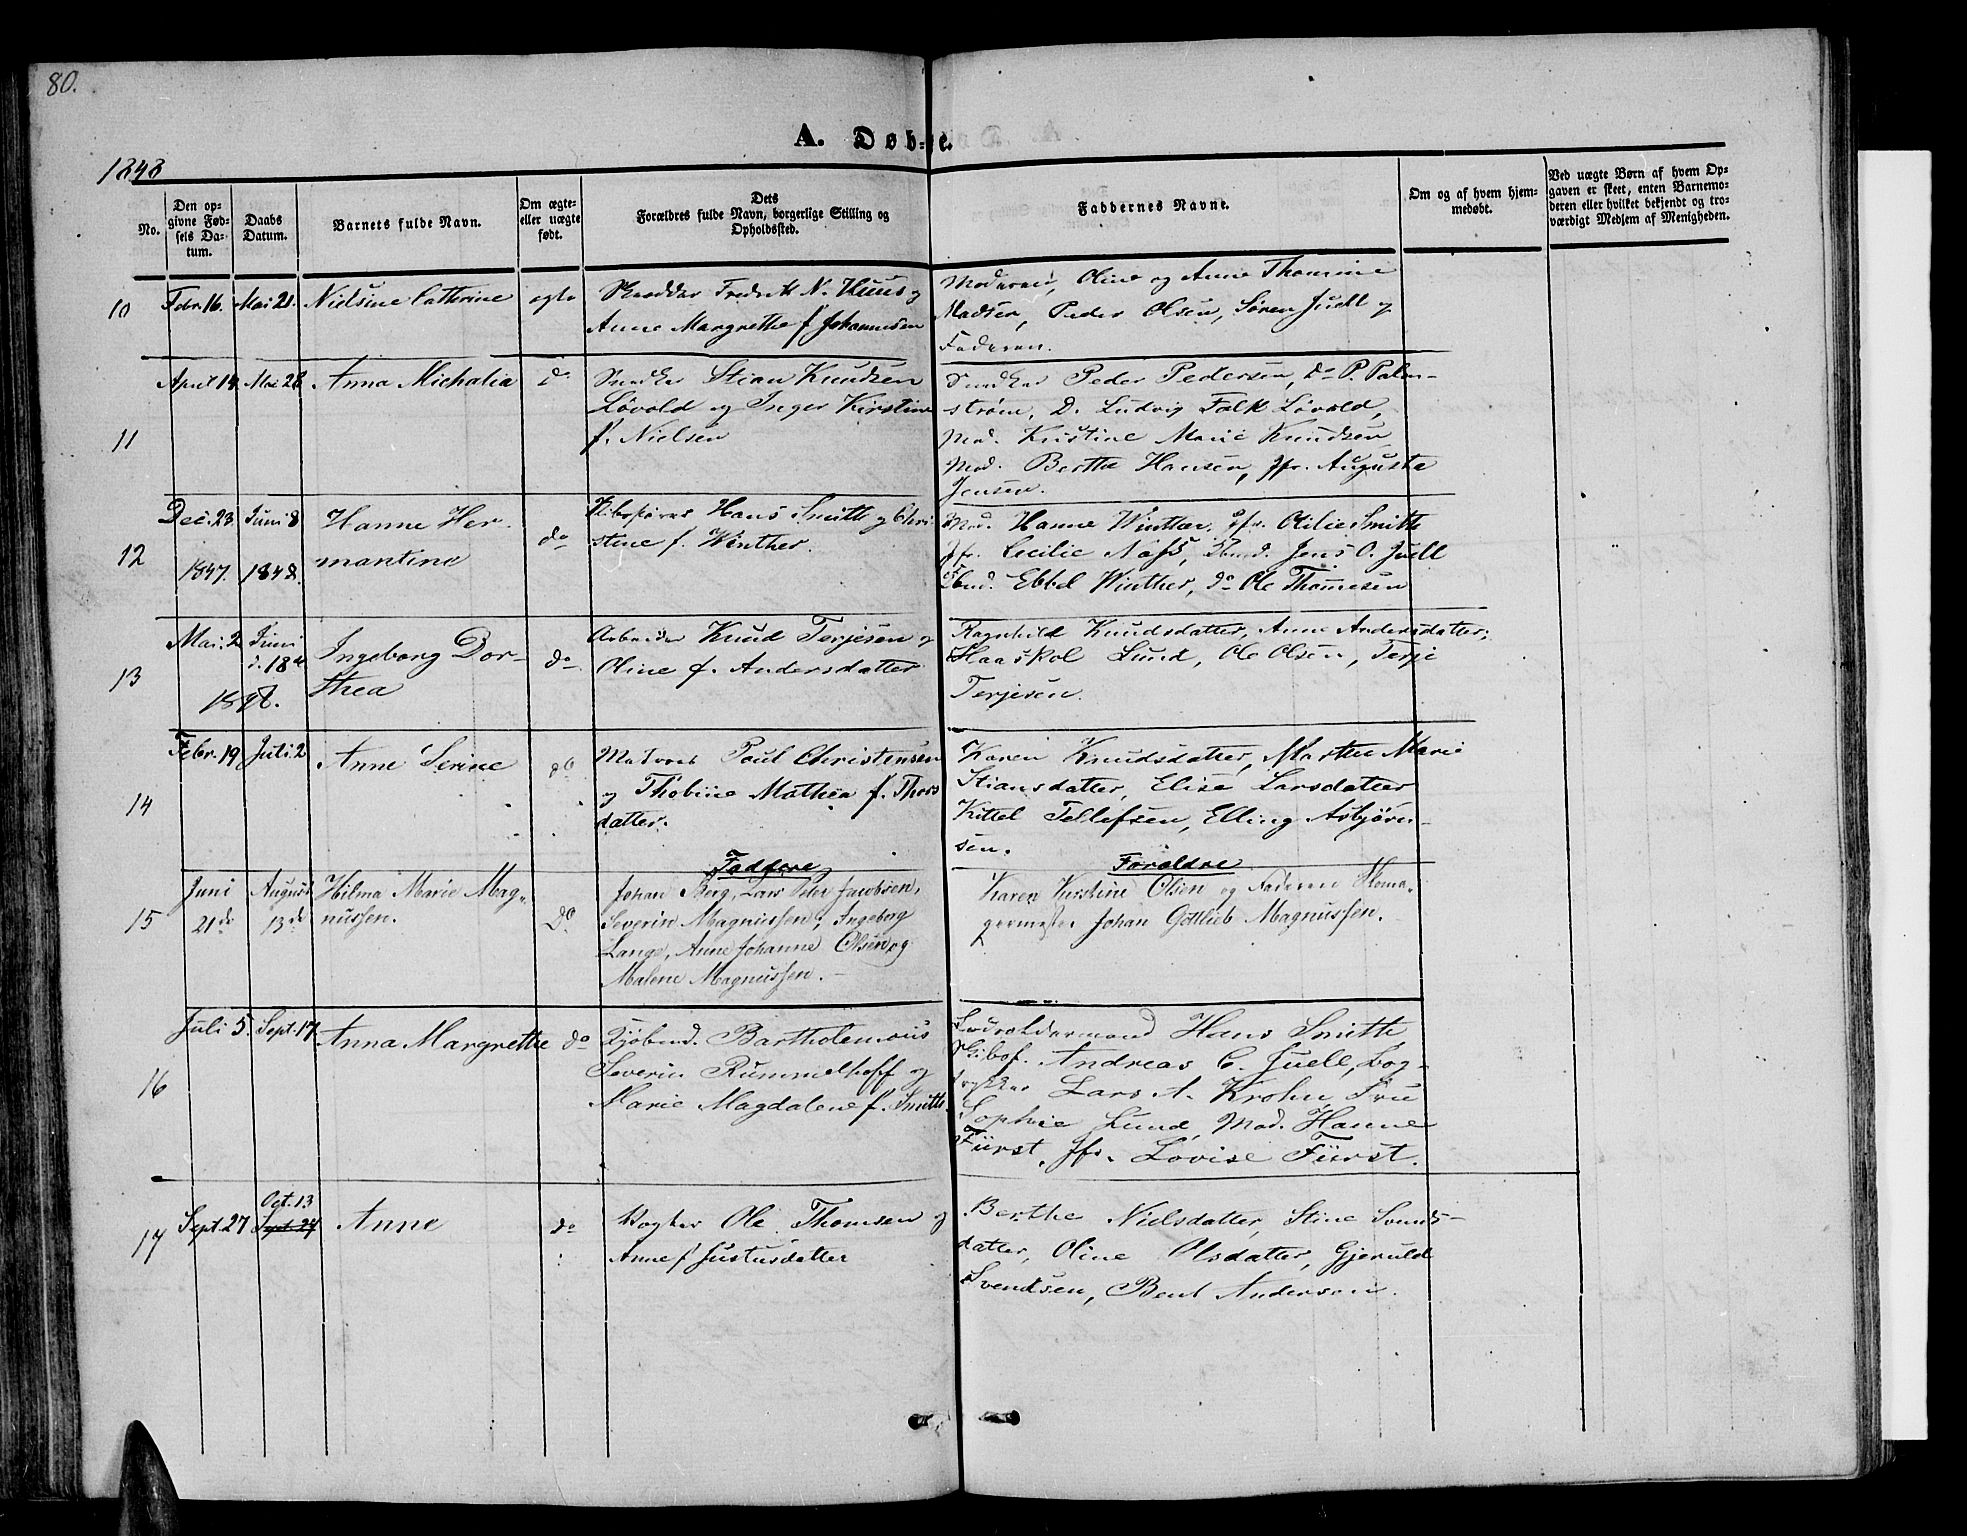 80.
A. Døbte.
1848
No.
Den op-
givne Fød-
sels Da-
tum.
Daabs
Datum.
Barnets fulde Navn.
Om ægte
eller uægte
født.
Dets
Forældres fulde Navn, borgerlige Stilling og
Opholdssted.
Faddernes Navne.
Om og af hvem hjem-
medøbt.
Ved uægte Børn af hvem Op-
gaven er skeet, enten Barnemo-
deren eller hvilket bekjendt og tro-
værdigt Medlem af Menigheden.
10
Febr. 16.
Mai 21.
Nielsine Cathrine
ægte
Skrædder Fredrik N. Huus og
Anne Margrethe f Johannesen
Moderen, Oline og Anne Thomine
Madsen, Peder Olsen, Søren Juell og
Faderen.
11
April 14.
Mai 28
Anna Michalia
do
Snedker Stian Knudsen
Løvold og Inger Kirstine
f. Nielsen
Snedker Peder Pedersen, Do P. Palm-
strøm, D. Ludvig Falk Løvold,
Mad. Kristine Marie Knudsen
Mad. Berthe Hansen, Jfr. Augusta
Jensen.
12
Dec. 23
1847.
Juni 8
1848.
Hanne Her-
mantine
do
Skibsfører Hans Smith og Chri-
stine f. Winther.
Mad. Hanne Winther, Jfr. Otilie Smith
Jfr. Cecilie Næss, Jens O. Juell
Ebbel Winther, do Ole Thommesen
13
Mai 2
Juni
d. 18de
1848.
Ingeborg Dor-
thea
do
Arbeider Knud Terjesen og
Oline f. Andersdatter
Ragnhild Knudsdatter, Anne Andersdatter,
Lund, Ole Olsen, Terje
Terjesen.
14
Febr. 19
Juli 2
Anne Serine
do
Matros Paul Christensen
og Thobine Mathea f. Thors
datter.
Karen Knudsdatter, Marthe Marie
Stiansdatter, Elise Larsdatter
Kittel Tellefsen, Elling Asbjørn-
sen.
15
Juni
21de
August
13de
Hilma Marie Mag-
nussen.
Do
Faddere
Johan Berg, Lars Peter Jacobsen,
Severin Magnussen, Ingeborg
Lange, Anne Johanne Olsen og
Malene Magnussen.
Forældre
Karen Kirstine Olsen og Faderen Skoma-
germester Johan Gottlieb Magnussen.
16
Juli 5.
Sept. 17.
Anna Margrethe
do
Kjøbmd. Bartholemæus
Severin Rummelhoff og
Marie Magdalene f. Smith.
Hans Smith
Skibsf. Andreas C. Juell, Bog-
trykker Lars A. Krohn, Fru
Sophie Lund, Mad. Hanne
Fürst, Jfr. Lovise Fürst.
17
Sept. 27
Oct. 13
Sept. 27
Anne
do
Ole Thomsen og
Anne f Justusdatter
Berthe Nielsdatter, Stine Svends-
datter, Oline Olsdatter, Gjeruld
Svendsen, Bent Andersen.